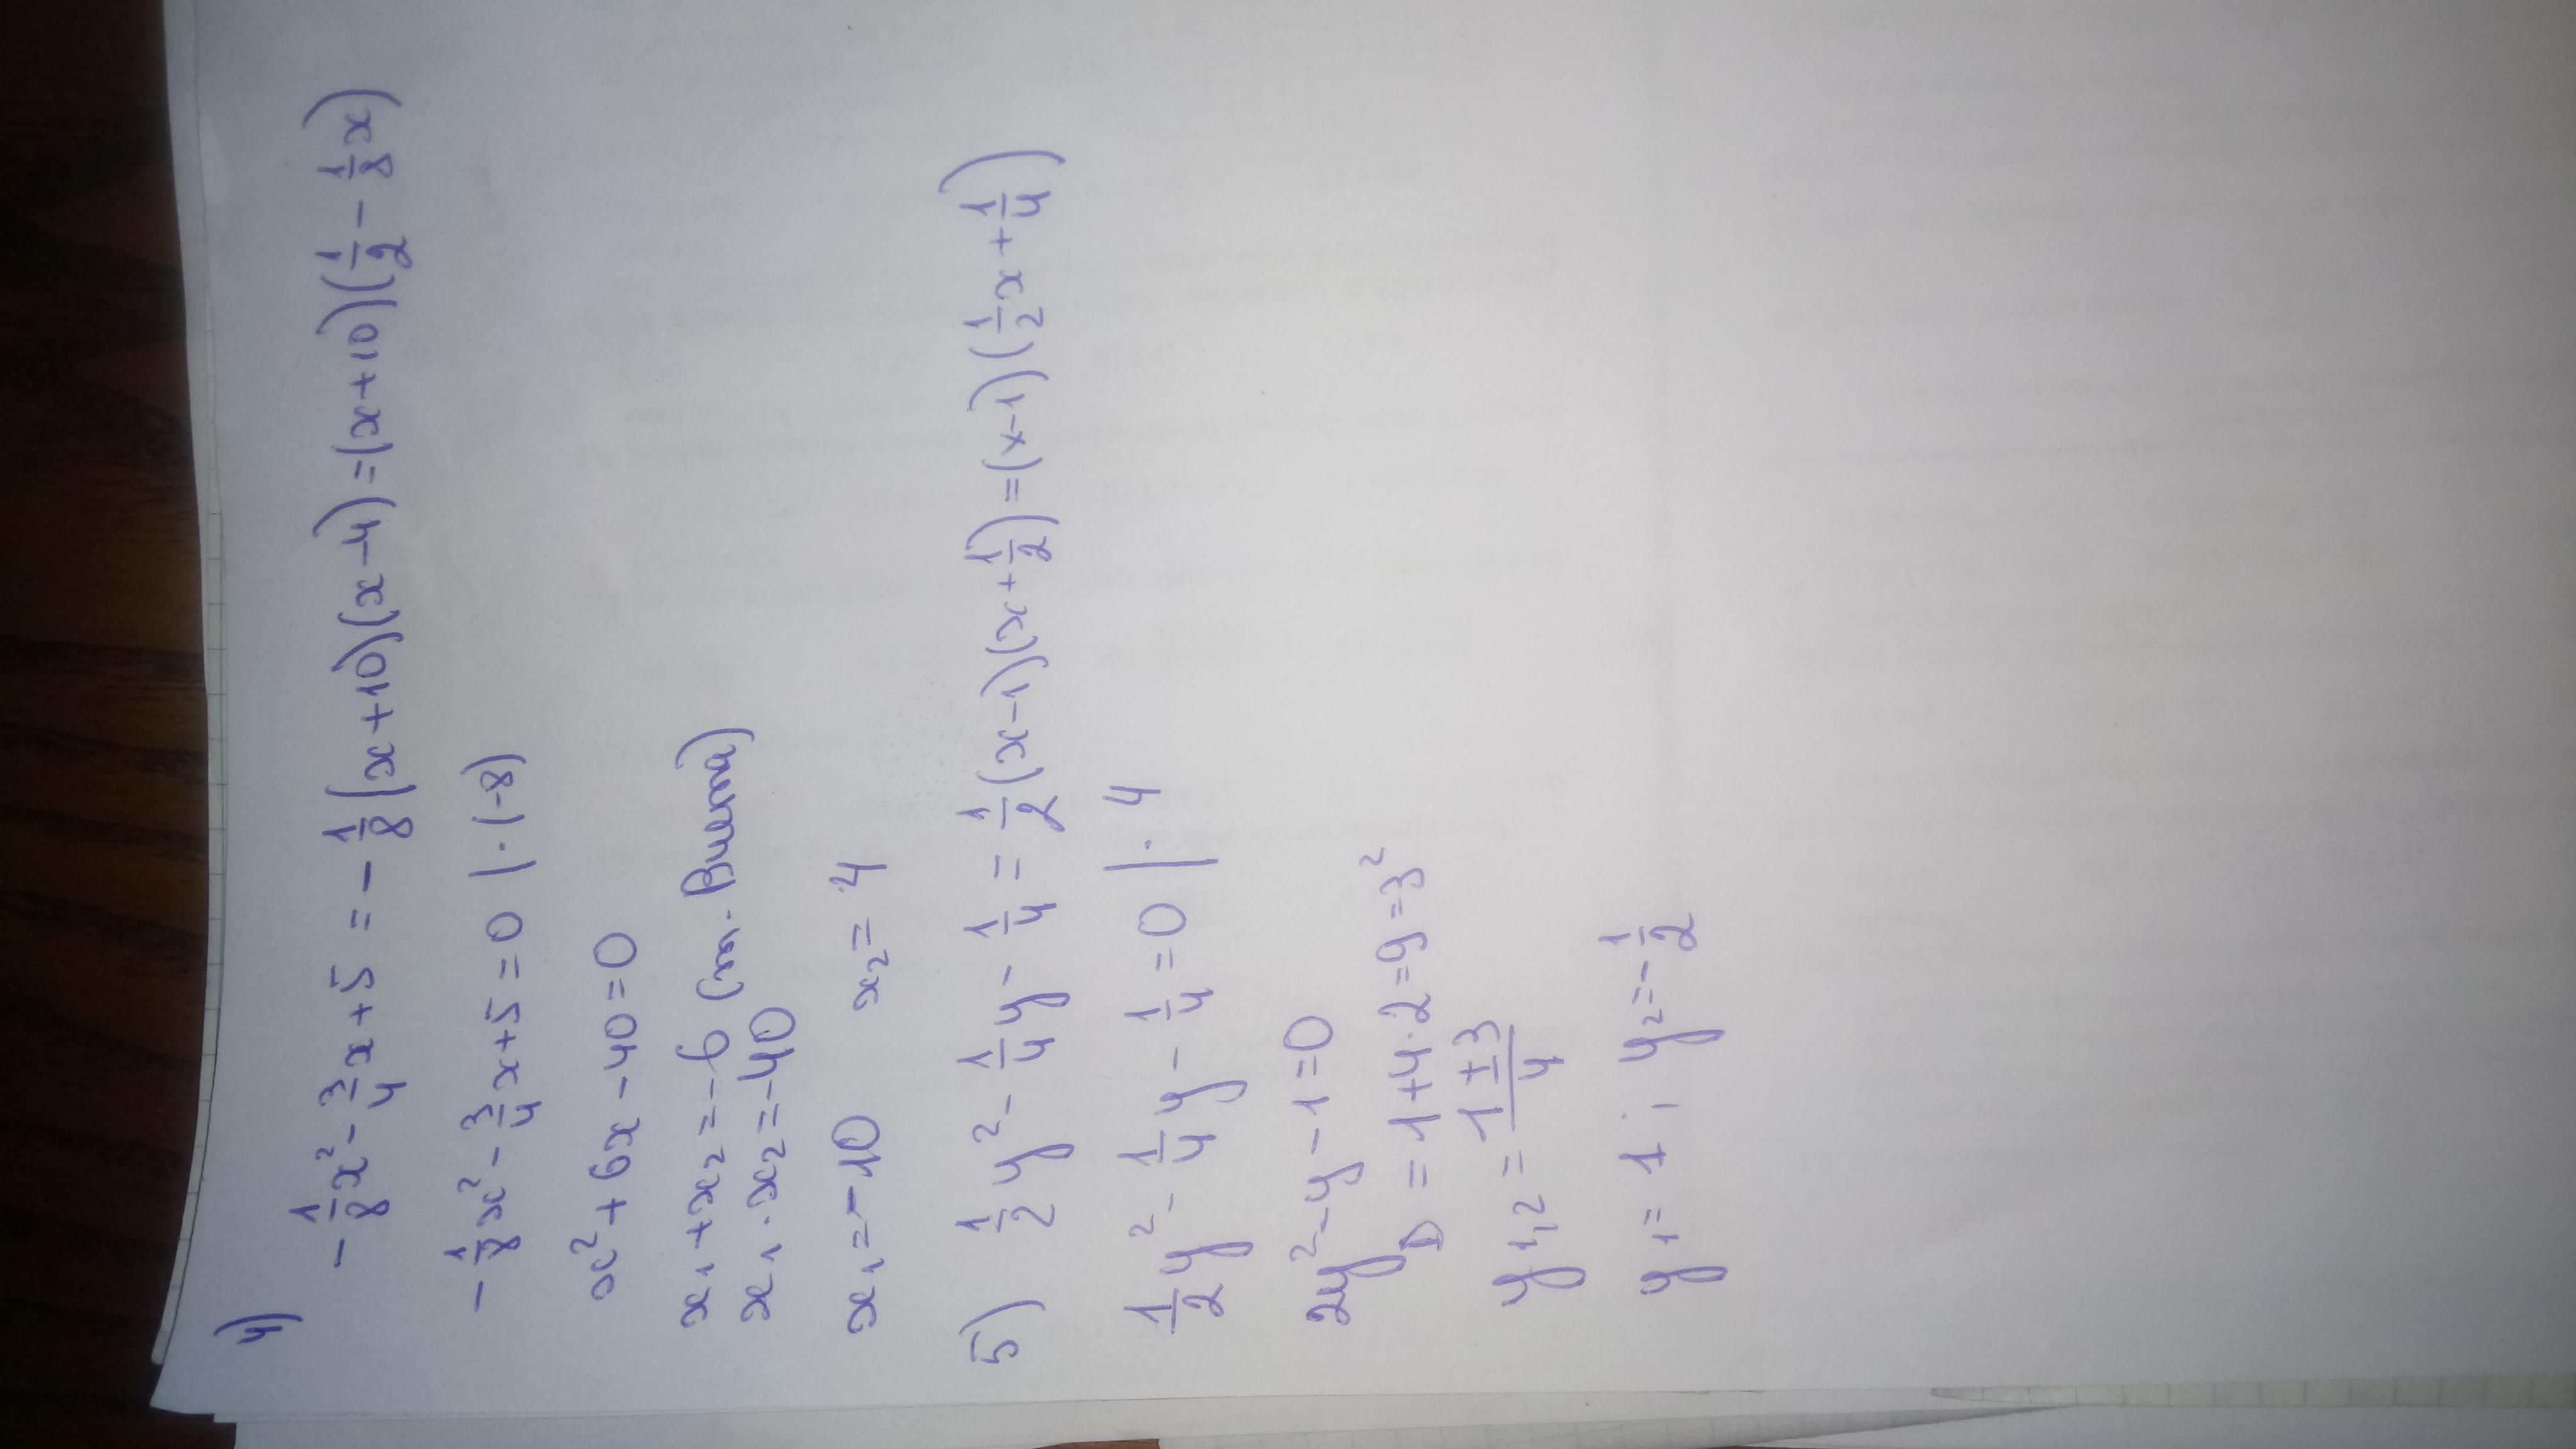 4)
-1/8x² - 3/4x + 5 = -1/8(x+10)(x-4) = (x+10)(1/2 - 1/8x)
-1/8x² - 3/4x + 5 = 0 | · (-8)
x² + 6x - 40 = 0
x₁ + x₂ = -6 (т. Виета)
x₁ · x₂ = -40
x₁ = -10 x₂ = 4
5) 1/2y² - 1/4y - 1/4 = 1/2(x-1)(x+1/2) = (x-1)(1/2x + 1/4)
1/2y² - 1/4y - 1/4 = 0 | · 4
2y² - y - 1 = 0
D = 1 + 4·2 = 9 = 3²
y₁,₂ = (1±3)/4
y₁ = 1; y₂ = -1/2